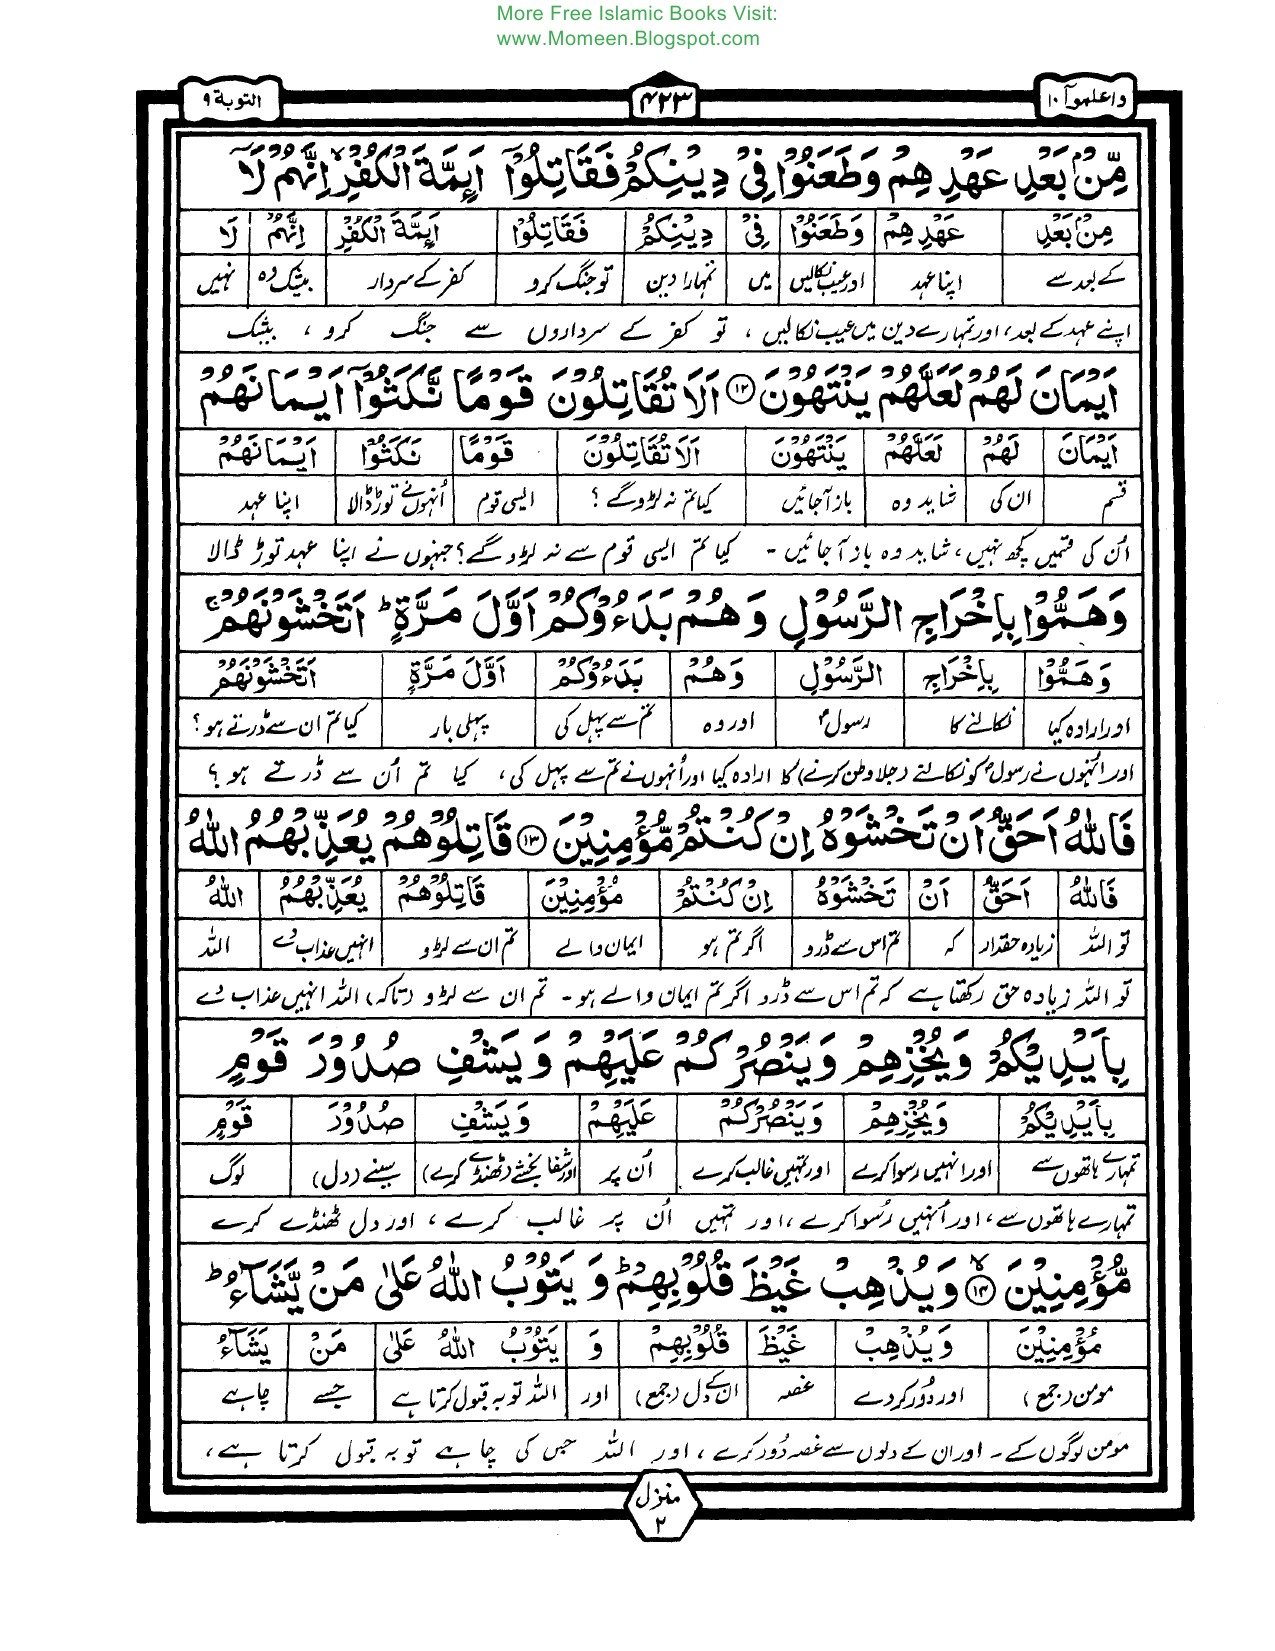 More Free Islamic Books Visit:
www.Momeen.Blogspot.com
واعلموآ ۱۰
۴۲۳
التوبة ۹
مِّنْۢ بَعْدِ عَهْدِهِمْ وَطَعَنُوْا فِیْ دِیْنِكُمْ فَقَاتِلُوْۤا اَىِٕمَّةَ الْكُفْرِ ۙ اِنَّهُمْ لَاۤ
مِنْۢ بَعْدِ عَهْدِهِمْ وَطَعَنُوْا فِیْ دِیْنِكُمْ فَقَاتِلُوْا اَىِٕمَّةَ الْكُفْرِ اِنَّهُمْ لَا
کے بعد سے اپنا عہد اور عیب نکالیں میں تمہارا دین تو جنگ کرو کفر کے سردار بیشک وہ نہیں
اپنے عہد کے بعد، اور تمہارے دین میں عیب نکالیں ، تو کفر کے سرداروں سے جنگ کرو ، بیشک
اَیْمَانَ لَهُمْ لَعَلَّهُمْ یَنْتَهُوْنَ ۱۲ اَلَا تُقَاتِلُوْنَ قَوْمًا نَّكَثُوْۤا اَیْمَانَهُمْ
اَیْمَانَ لَهُمْ لَعَلَّهُمْ یَنْتَهُوْنَ اَلَا تُقَاتِلُوْنَ قَوْمًا نَكَثُوْا اَیْمَانَهُمْ
قسم ان کی شاید وہ باز آجائیں کیا تم نہ لڑوگے ؟ ایسی قوم اُنہوں نے توڑ ڈالا اپنا عہد
اُن کی قسمیں کچھ نہیں، شاید وہ باز آجائیں - کیا تم ایسی قوم سے نہ لڑوگے؟ جنہوں نے اپنا عہد توڑ ڈالا
وَهَمُّوْا بِاِخْرَاجِ الرَّسُوْلِ وَهُمْ بَدَءُوْكُمْ اَوَّلَ مَرَّةٍ ؕ اَتَخْشَوْنَهُمْ ۚ
وَهَمُّوْا بِاِخْرَاجِ الرَّسُوْلِ وَهُمْ بَدَءُوْكُمْ اَوَّلَ مَرَّةٍ اَتَخْشَوْنَهُمْ
اور ارادہ کیا نکالنے کا رسولؐ اور وہ تم سے پہل کی پہلی بار کیا تم ان سے ڈرتے ہو؟
اور انہوں نے رسولؐ کو نکالنے (جلا وطن کرنے) کا ارادہ کیا اور اُنہوں نے تم سے پہل کی، کیا تم اُن سے ڈرتے ہو ؟
فَاللّٰهُ اَحَقُّ اَنْ تَخْشَوْهُ اِنْ كُنْتُمْ مُّؤْمِنِیْنَ ۱۳ قَاتِلُوْهُمْ یُعَذِّبْهُمُ اللّٰهُ
فَاللّٰهُ اَحَقُّ اَنْ تَخْشَوْهُ اِنْ كُنْتُمْ مُؤْمِنِیْنَ قَاتِلُوْهُمْ یُعَذِّبْهُمُ اللّٰهُ
تو اللہ زیادہ حقدار کہ تم اس سے ڈرو اگر تم ہو ایمان والے تم ان سے لڑو انہیں عذاب دے اللہ
تو اللہ زیادہ حق رکھتا ہے کہ تم اس سے ڈرو اگر تم ایمان والے ہو - تم ان سے لڑو (تاکہ) اللہ انہیں عذاب دے
بِاَیْدِیْكُمْ وَیُخْزِهِمْ وَیَنْصُرْكُمْ عَلَیْهِمْ وَیَشْفِ صُدُوْرَ قَوْمٍ
بِاَیْدِیْكُمْ وَیُخْزِهِمْ وَیَنْصُرْكُمْ عَلَیْهِمْ وَیَشْفِ صُدُوْرَ قَوْمٍ
تمہارے ہاتھوں سے اور انہیں رسوا کرے اور تمہیں غالب کرے اُن پر اور شفا بخشے (ٹھنڈے کرے) سینے (دل) لوگ
تمہارے ہاتھوں سے، اور اُنہیں رُسوا کرے، اور تمہیں اُن پر غالب کرے ، اور دل ٹھنڈے کرے
مُّؤْمِنِیْنَ ۱۴ ۙ وَیُذْهِبْ غَیْظَ قُلُوْبِهِمْ ؕ وَیَتُوْبُ اللّٰهُ عَلٰی مَنْ یَّشَآءُ ؕ
مُؤْمِنِیْنَ وَیُذْهِبْ غَیْظَ قُلُوْبِهِمْ وَ یَتُوْبُ اللّٰهُ عَلٰی مَنْ یَشَآءُ
مومن (جمع) اور دُور کردے غصہ ان کے دل (جمع) اور اللہ توبہ قبول کرتا ہے جسے چاہے
مومن لوگوں کے - اور ان کے دلوں سے غصہ دُور کرے ، اور اللہ جس کی چاہے توبہ قبول کرتا ہے،
منزل
۲